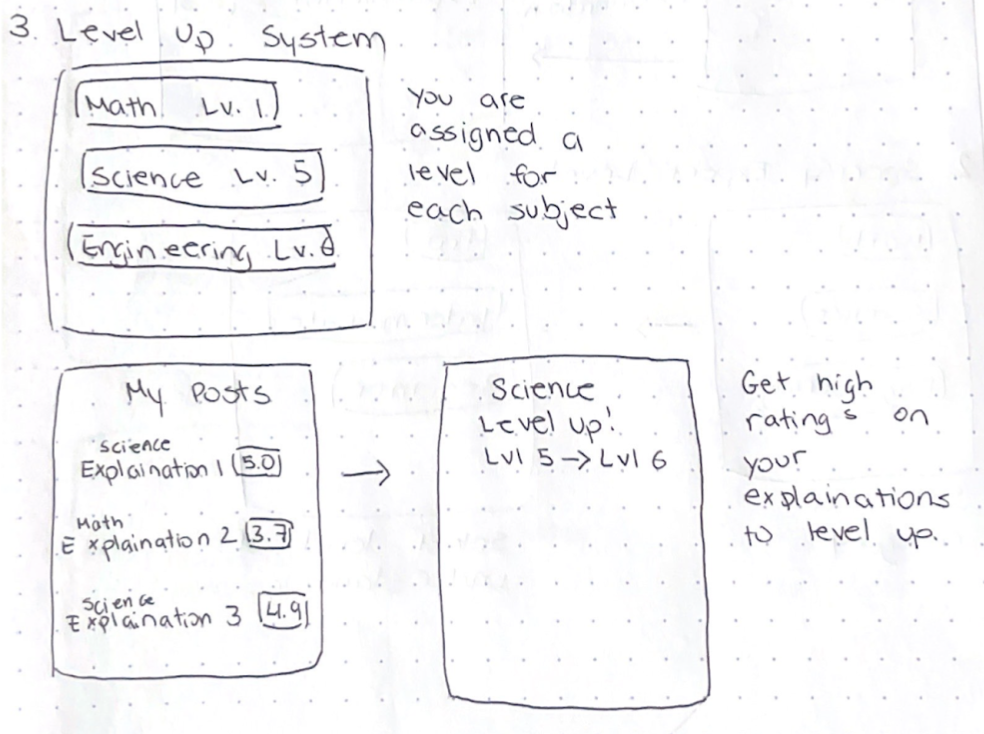 3. Level Up System
Math Lv. 1
Science Lv. 5
Engineering Lv. 6
You are
assigned a
level for
each subject
My Posts
Science
Explaination 1 5.0
Math
Explaination 2 3.7
Science
Explaination 3 4.9
Science
Level up!
Lvl 5 → Lvl 6
Get high
ratings on
your
explainations
to level up.